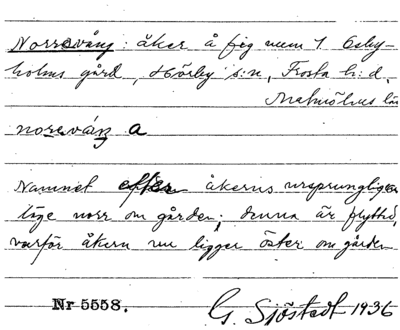 Norrevång: åker å fig num 1 Osby-
holms gård, Hörby s:n, Frosta h:d,
Malmöhus län
norevåŋ a
Namnet efter åkerns ursprungliga
läge norr om gården; denna är flyttad,
varför åkern nu ligger öster om gården
Nr 5558. G. Sjöstedt 1936